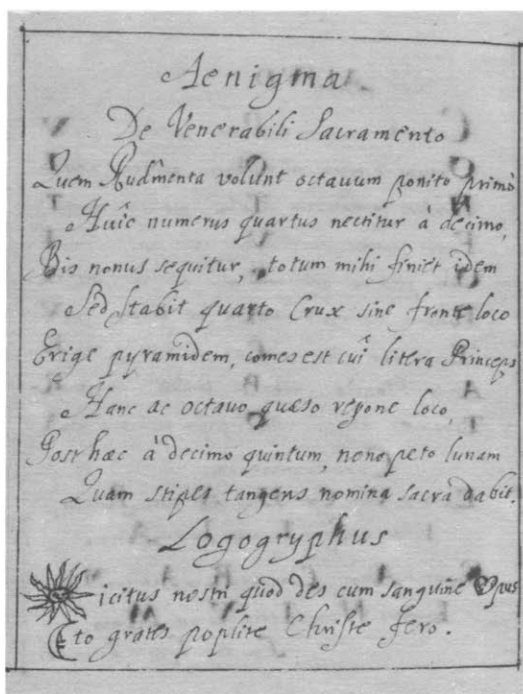 Aenigma.
De Venerabili Sacramento
Quem Rudîmenta volunt octauum ponito primò
Huîc numerus quartus nectitur à decimo,
Bis nonus sequitur, totum mihi finiet idem
Sed stabit quarto Crux sine fronte loco
Erige pyramidem, comes est cuî litera Princeps
Hanc ac octauo quæso repone loco,
Post hæc à decimo quintum, nono peto lunam
Quam stipes tangens nomina sacra dabit.
Logogryphus
icitus nostri quod des cum sanguine pus
to grates poplite Christe fero.